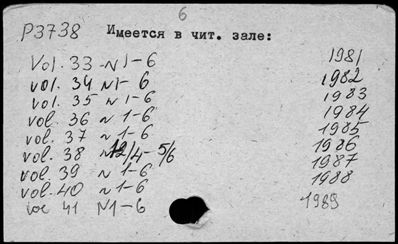 6
P3738 Имеется в чит. зале:
Vol. 33 - N 1-6 1981
vol. 34 N 1-6 1982
vol. 35 N 1-6 1983
vol. 36 N 1-6 1984
vol. 37 N 1-6 1985
vol. 38 N 12/4-5/6 1986
vol. 39 N 1-6 1987
vol. 40 N 1-6 1988
vol 41 N1-6 1989